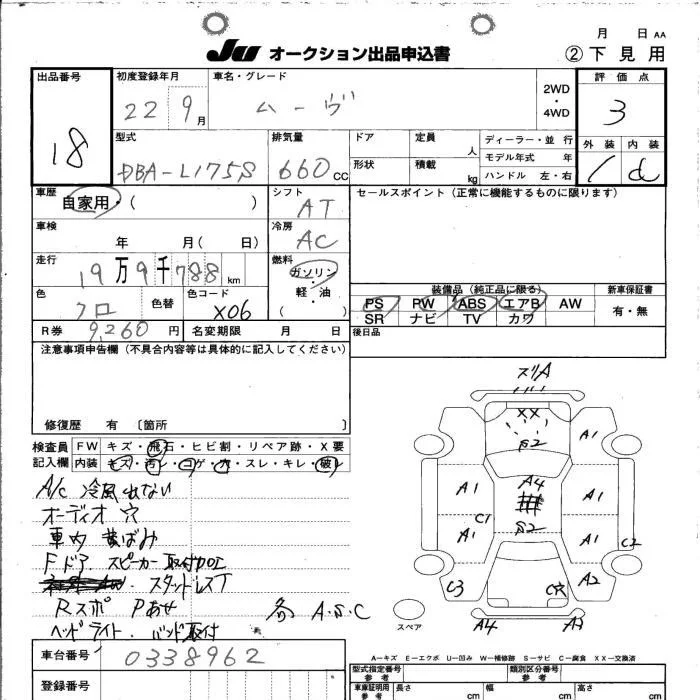 月 日 AA
JU オークション出品申込書 ②下見用
出品番号
18
初度登録年月
22 9月
車名・グレード
ムーヴ
2WD
・
4WD
評価点
3
外装 内装
型式
DBA-L175S
排気量
660cc
ドア
定員
人
ディーラー・並行
モデル年式 年
形状
積載
kg
ハンドル 左・右
車歴
自家用・( )
シフト
AT
セールスポイント(正常に機能するものに限ります)
車検
年 月( 日)
冷房
AC
走行
19万9千788km
燃料
ガソリン
軽・油
( )
装備品(純正品に限る)
新車保証書
色
クロ
色替
色コード
X06
PS PW ABS エアB AW
有・無
SR ナビ TV カワ
R券 9,260円
名変期限 月 日
後日品
注意事項申告欄(不具合内容等は具体的に記入してください)
修復歴 有 〔箇所 〕
検査員
記入欄
FW キズ・飛石・ヒビ割・リペア跡・X要
内装 キズ・汚レ・コゲ・穴・スレ・キレ・破レ
A/C 冷風出ない
オーディオ穴
車内 黄ばみ
Fドア スピーカー取付加工
スタッドレスT
Rスポ Pあせ 各A.S.C
ヘッドライト バンド取付
ズリA
XX
S2
A1
A1
A4
A1
C1
S2
A1
A1
C2
C3
C穴
A2
スペア
A4
A3
車台番号
0338962
登録番号
A—キズ E—エクボ U—凹み W—補修跡 S—サビ C—腐食 XX—交換済
型式指定番号
参考
類別区分番号
参考
車庫証明用
参考
長さ cm
幅 cm
高さ cm